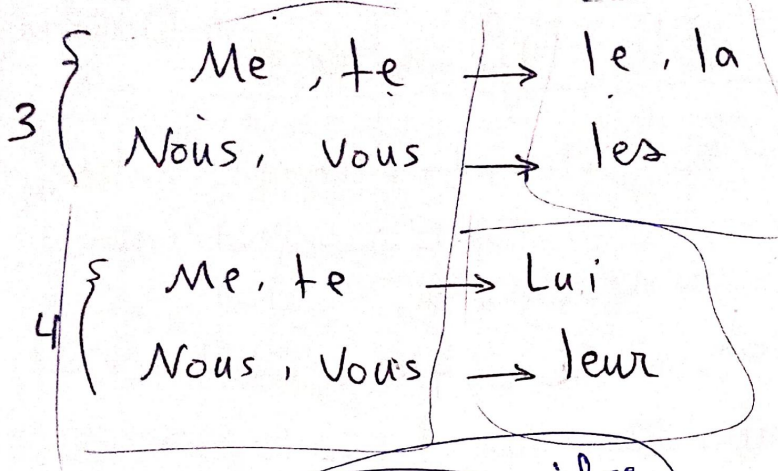 3 { Me, te → le, la
Nous, Vous → les
4 { Me, te → Lui
Nous, Vous → leur